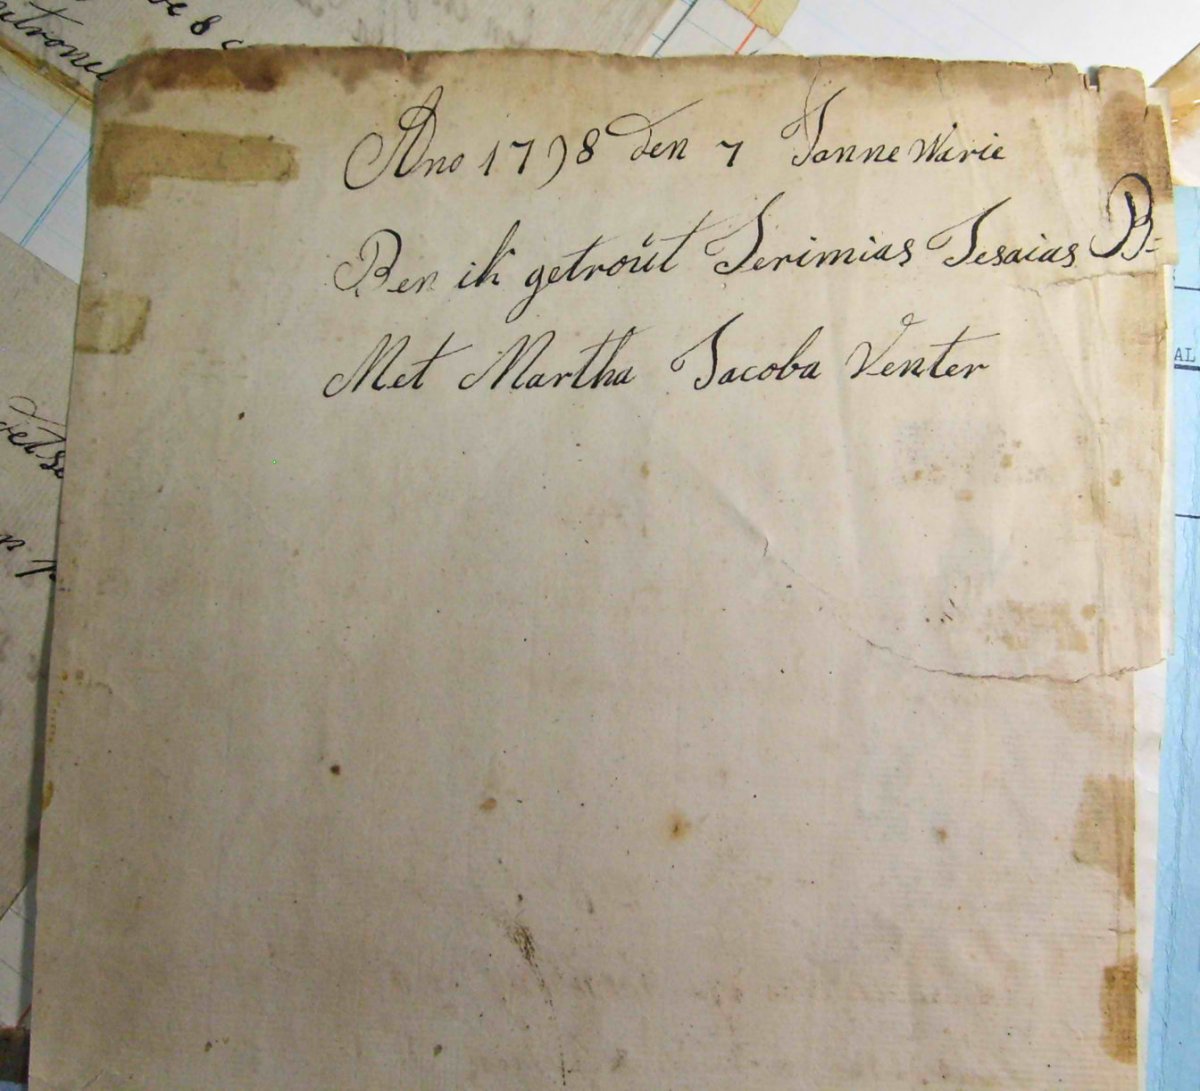 Ano 1798 den 7 JanneWarie
Ben ik getrout Jerimias Jesaias B-
Met Martha Jacoba Venter
AL